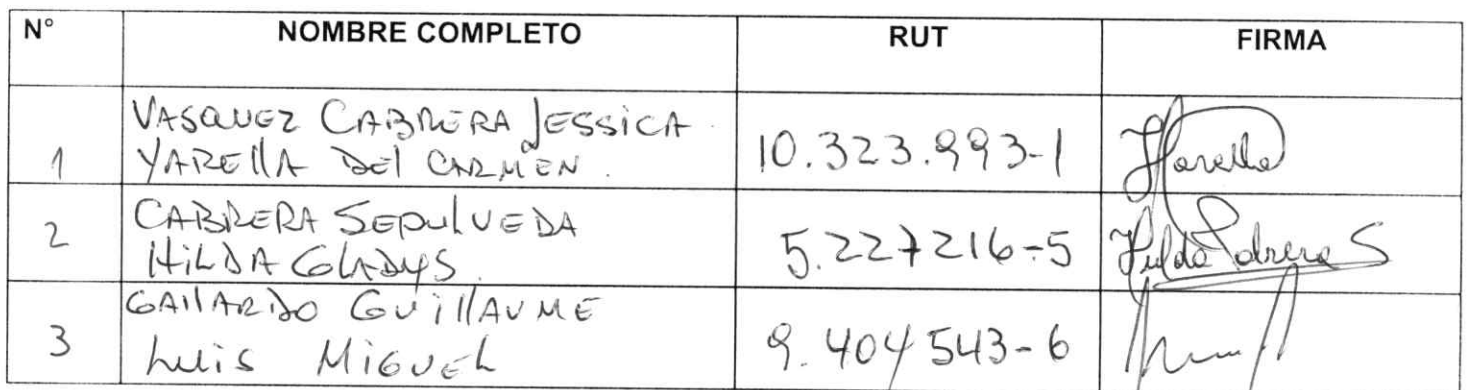 N° NOMBRE COMPLETO RUT FIRMA
VASQUEZ CABRERA JESSICA
1 YARELLA DEL CARMEN. 10.323.993-1 Yarella
CABRERA SEPULVEDA
2 HILDA GLADYS. 5.227216-5 Hilda Cabrera S
GALLARDO GUILLAUME
3 LUIS MIGUEL 9.404543-6